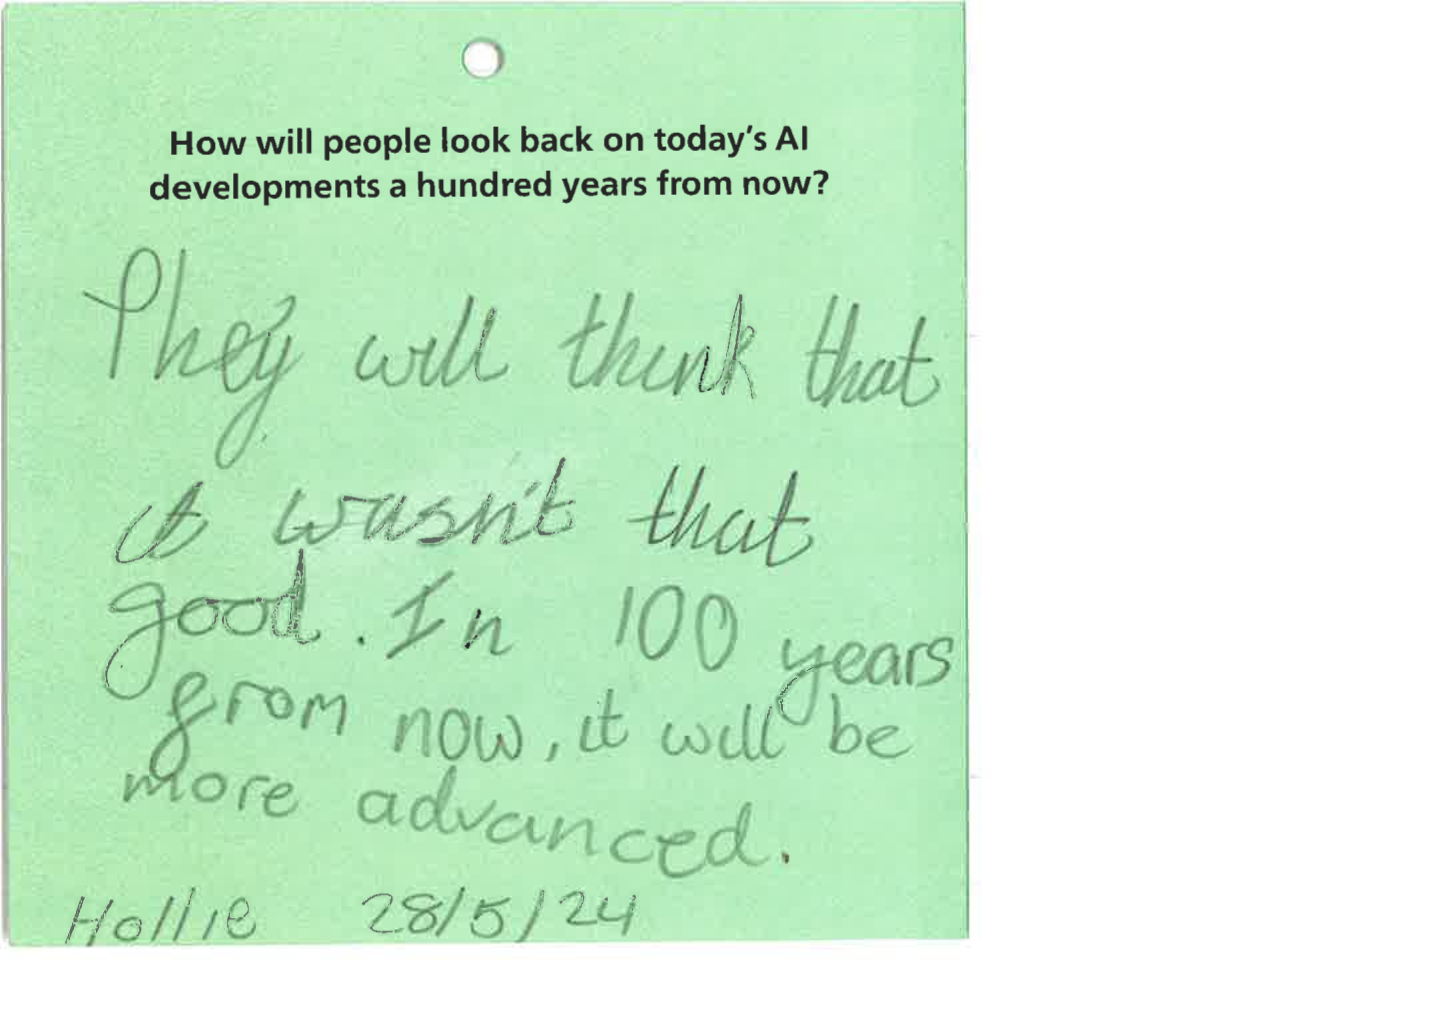 How will people look back on today's AI
developments a hundred years from now?
They will think that
it wasn't that
good. In 100 years
from now, it will be
more advanced.
Hollie 28/5/24